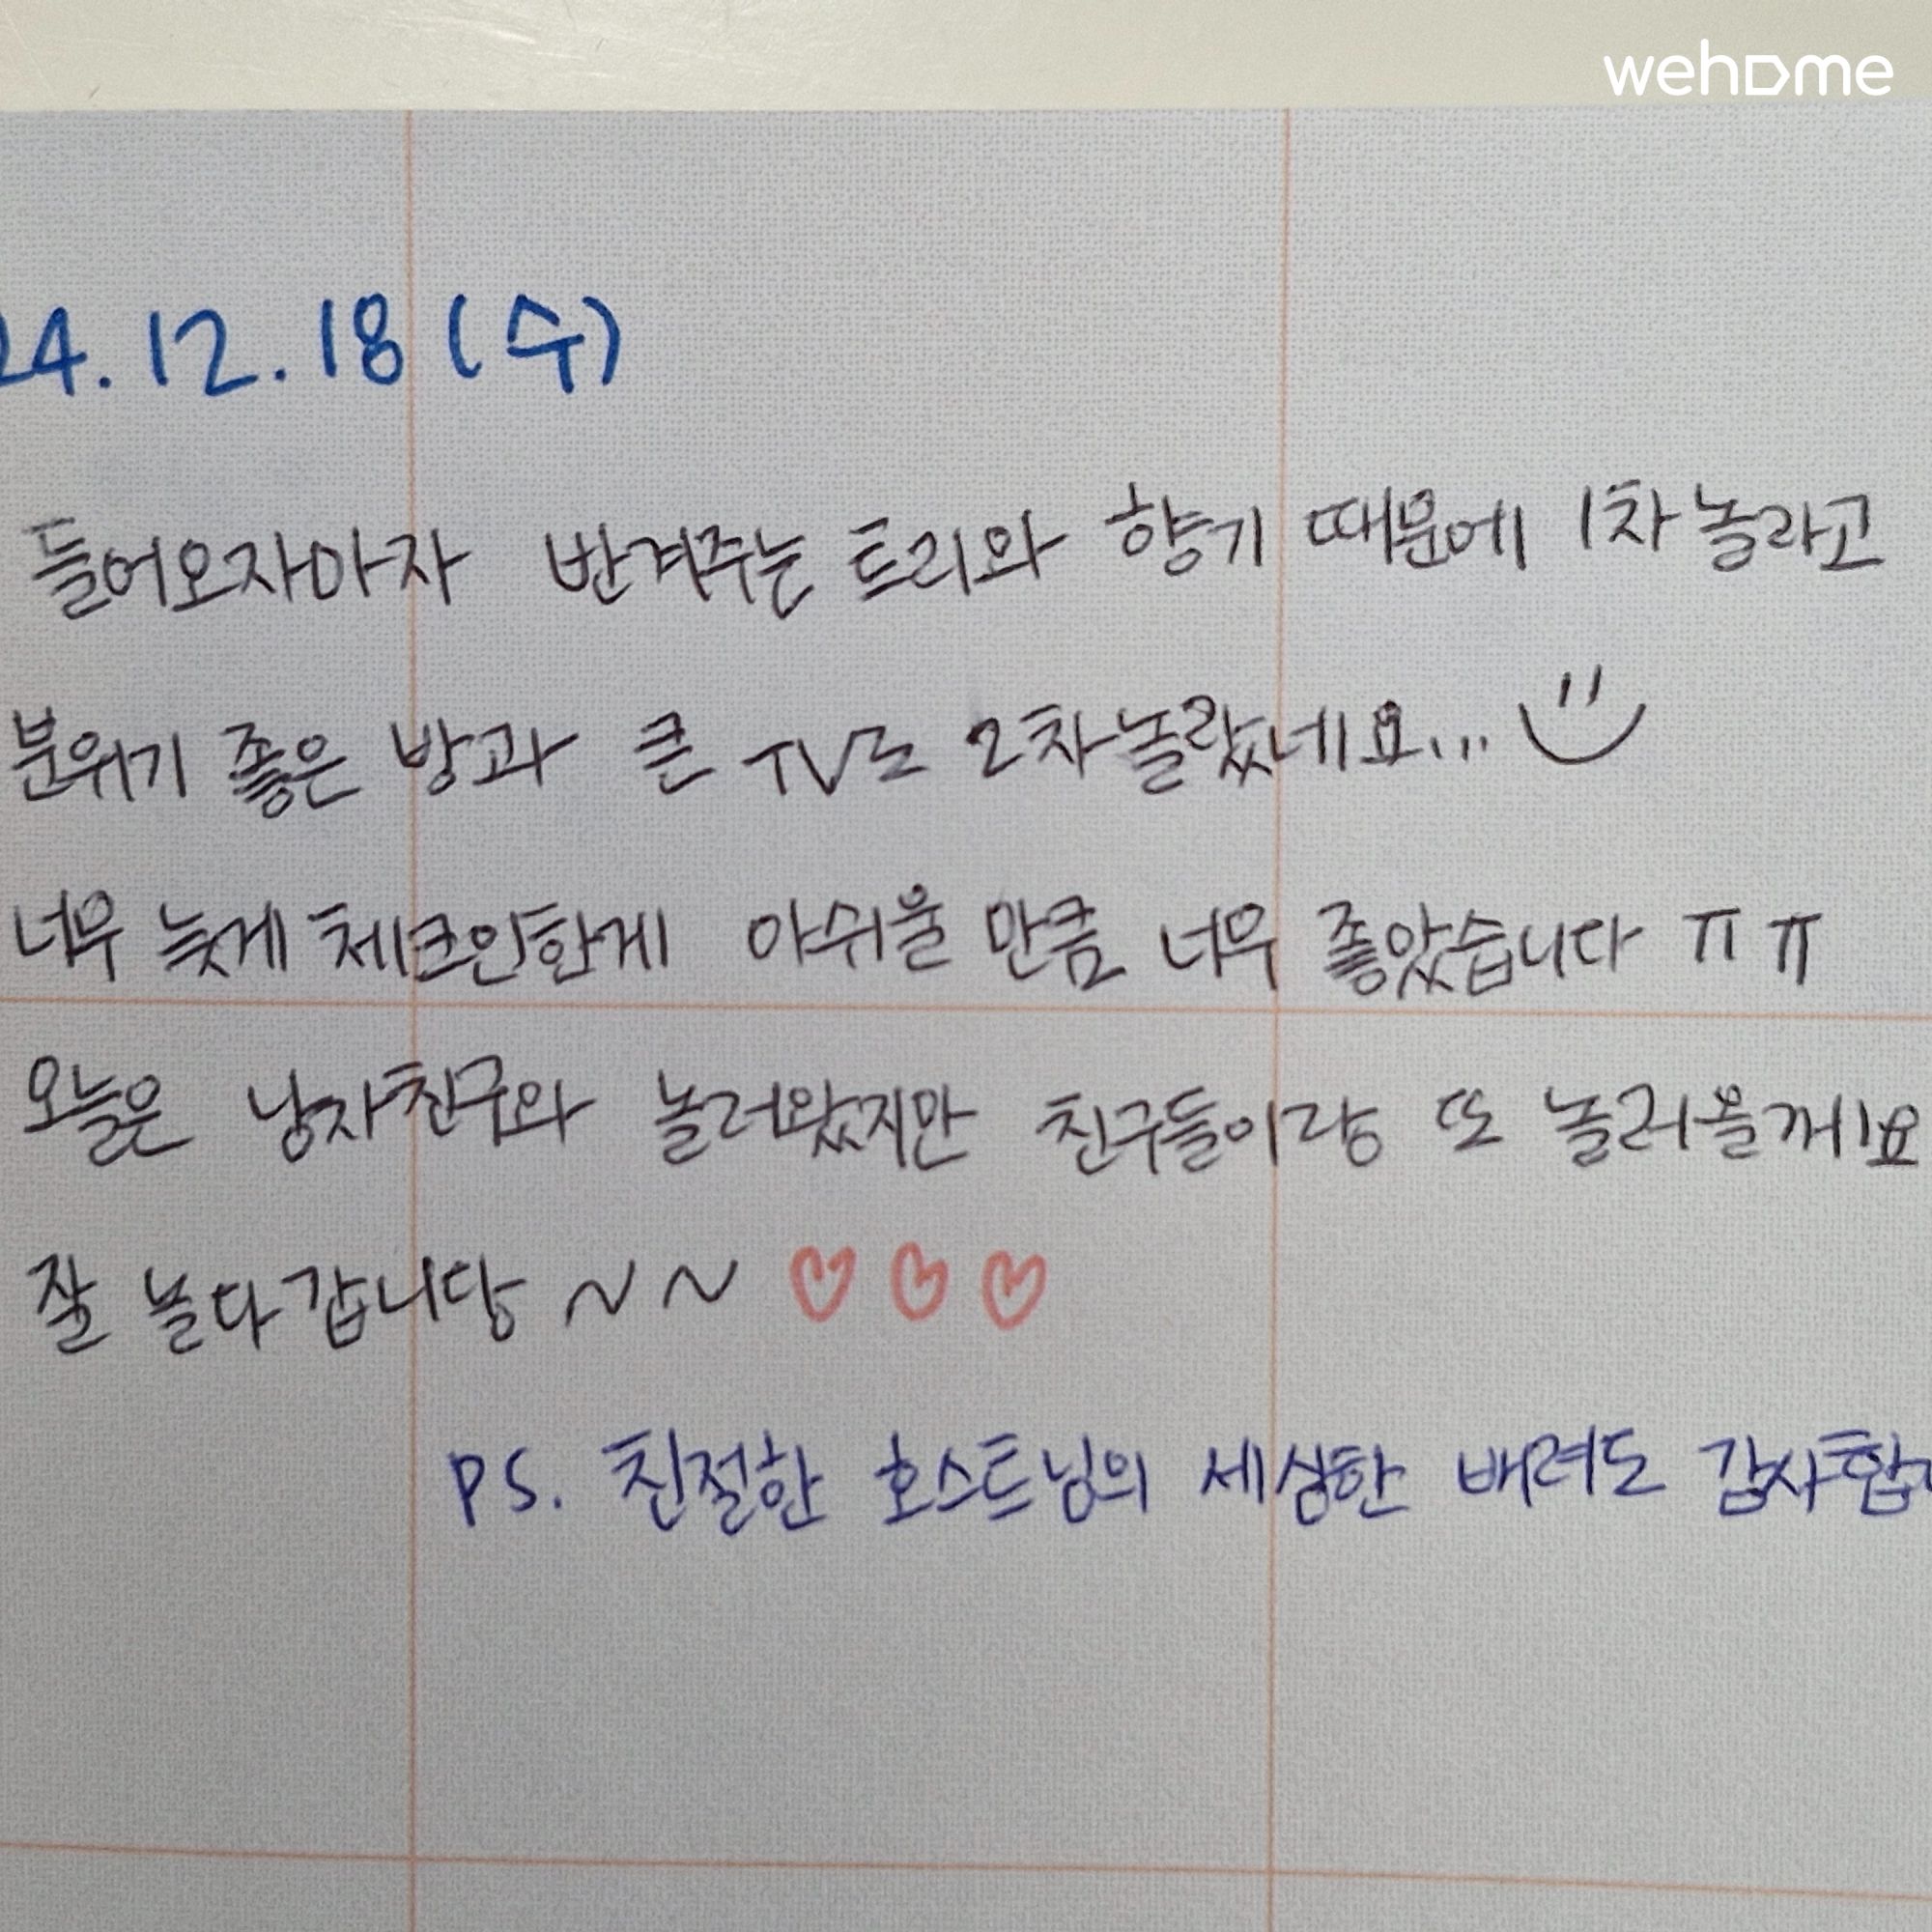 wehome
24.12.18(수)
들어오자마자 반겨주는 트리와 향기 때문에 1차놀라고
분위기 좋은 방과 큰 TV로 2차놀랐네요...
너무 늦게 체크인한게 아쉬울 만큼 너무 좋았습니다 ㅠㅠ
오늘은 남자친구와 놀러왔지만 친구들이랑 또 놀러올께요
잘 놀다갑니당 ~~ ♡♡♡
PS. 친절한 호스트님의 세심한 배려도 감사합